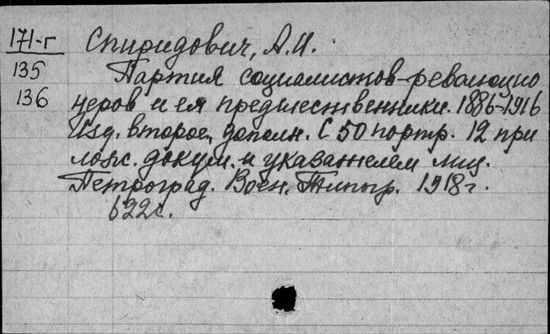 171-г Спиридович, А.И.
135 Партия социалистов-революцио
136 неров и ея предшественники. 1886-1916
Изд. второе, дополн. С 50 портр. 12 при
лож. докум. и указателем лиц.
Петроград. Воен. Типогр. 1918г.
622с.